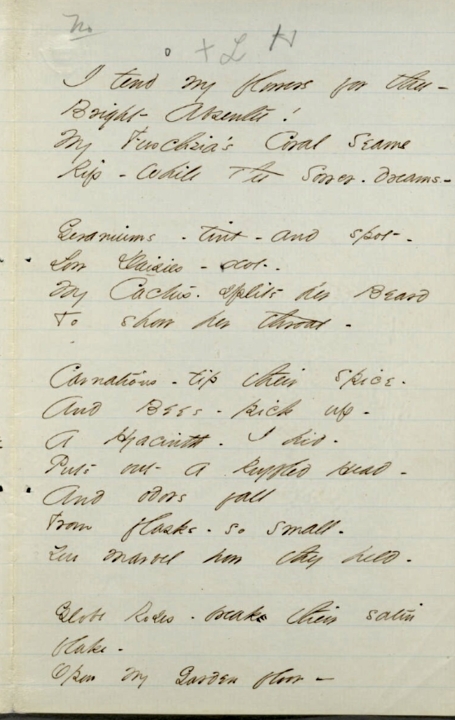 No
o + L H
I tend my flowers for thee -
Bright - Absentee!
My Fuschzia's Coral Seams
Rip - While the Sower - dreams -
Geraniums - tint - and spot -
Low Daisies - dot -
My Cactus - splits her Beard
To show her throat -
Carnations - tip their spice -
And Bees - pick up -
A Hyacinth - I hid -
Puts out a Ruffled Head -
And odors fall
From flasks - so small -
You marvel how they held -
Globe Roses - break their satin
flake -
Opon my Garden floor -